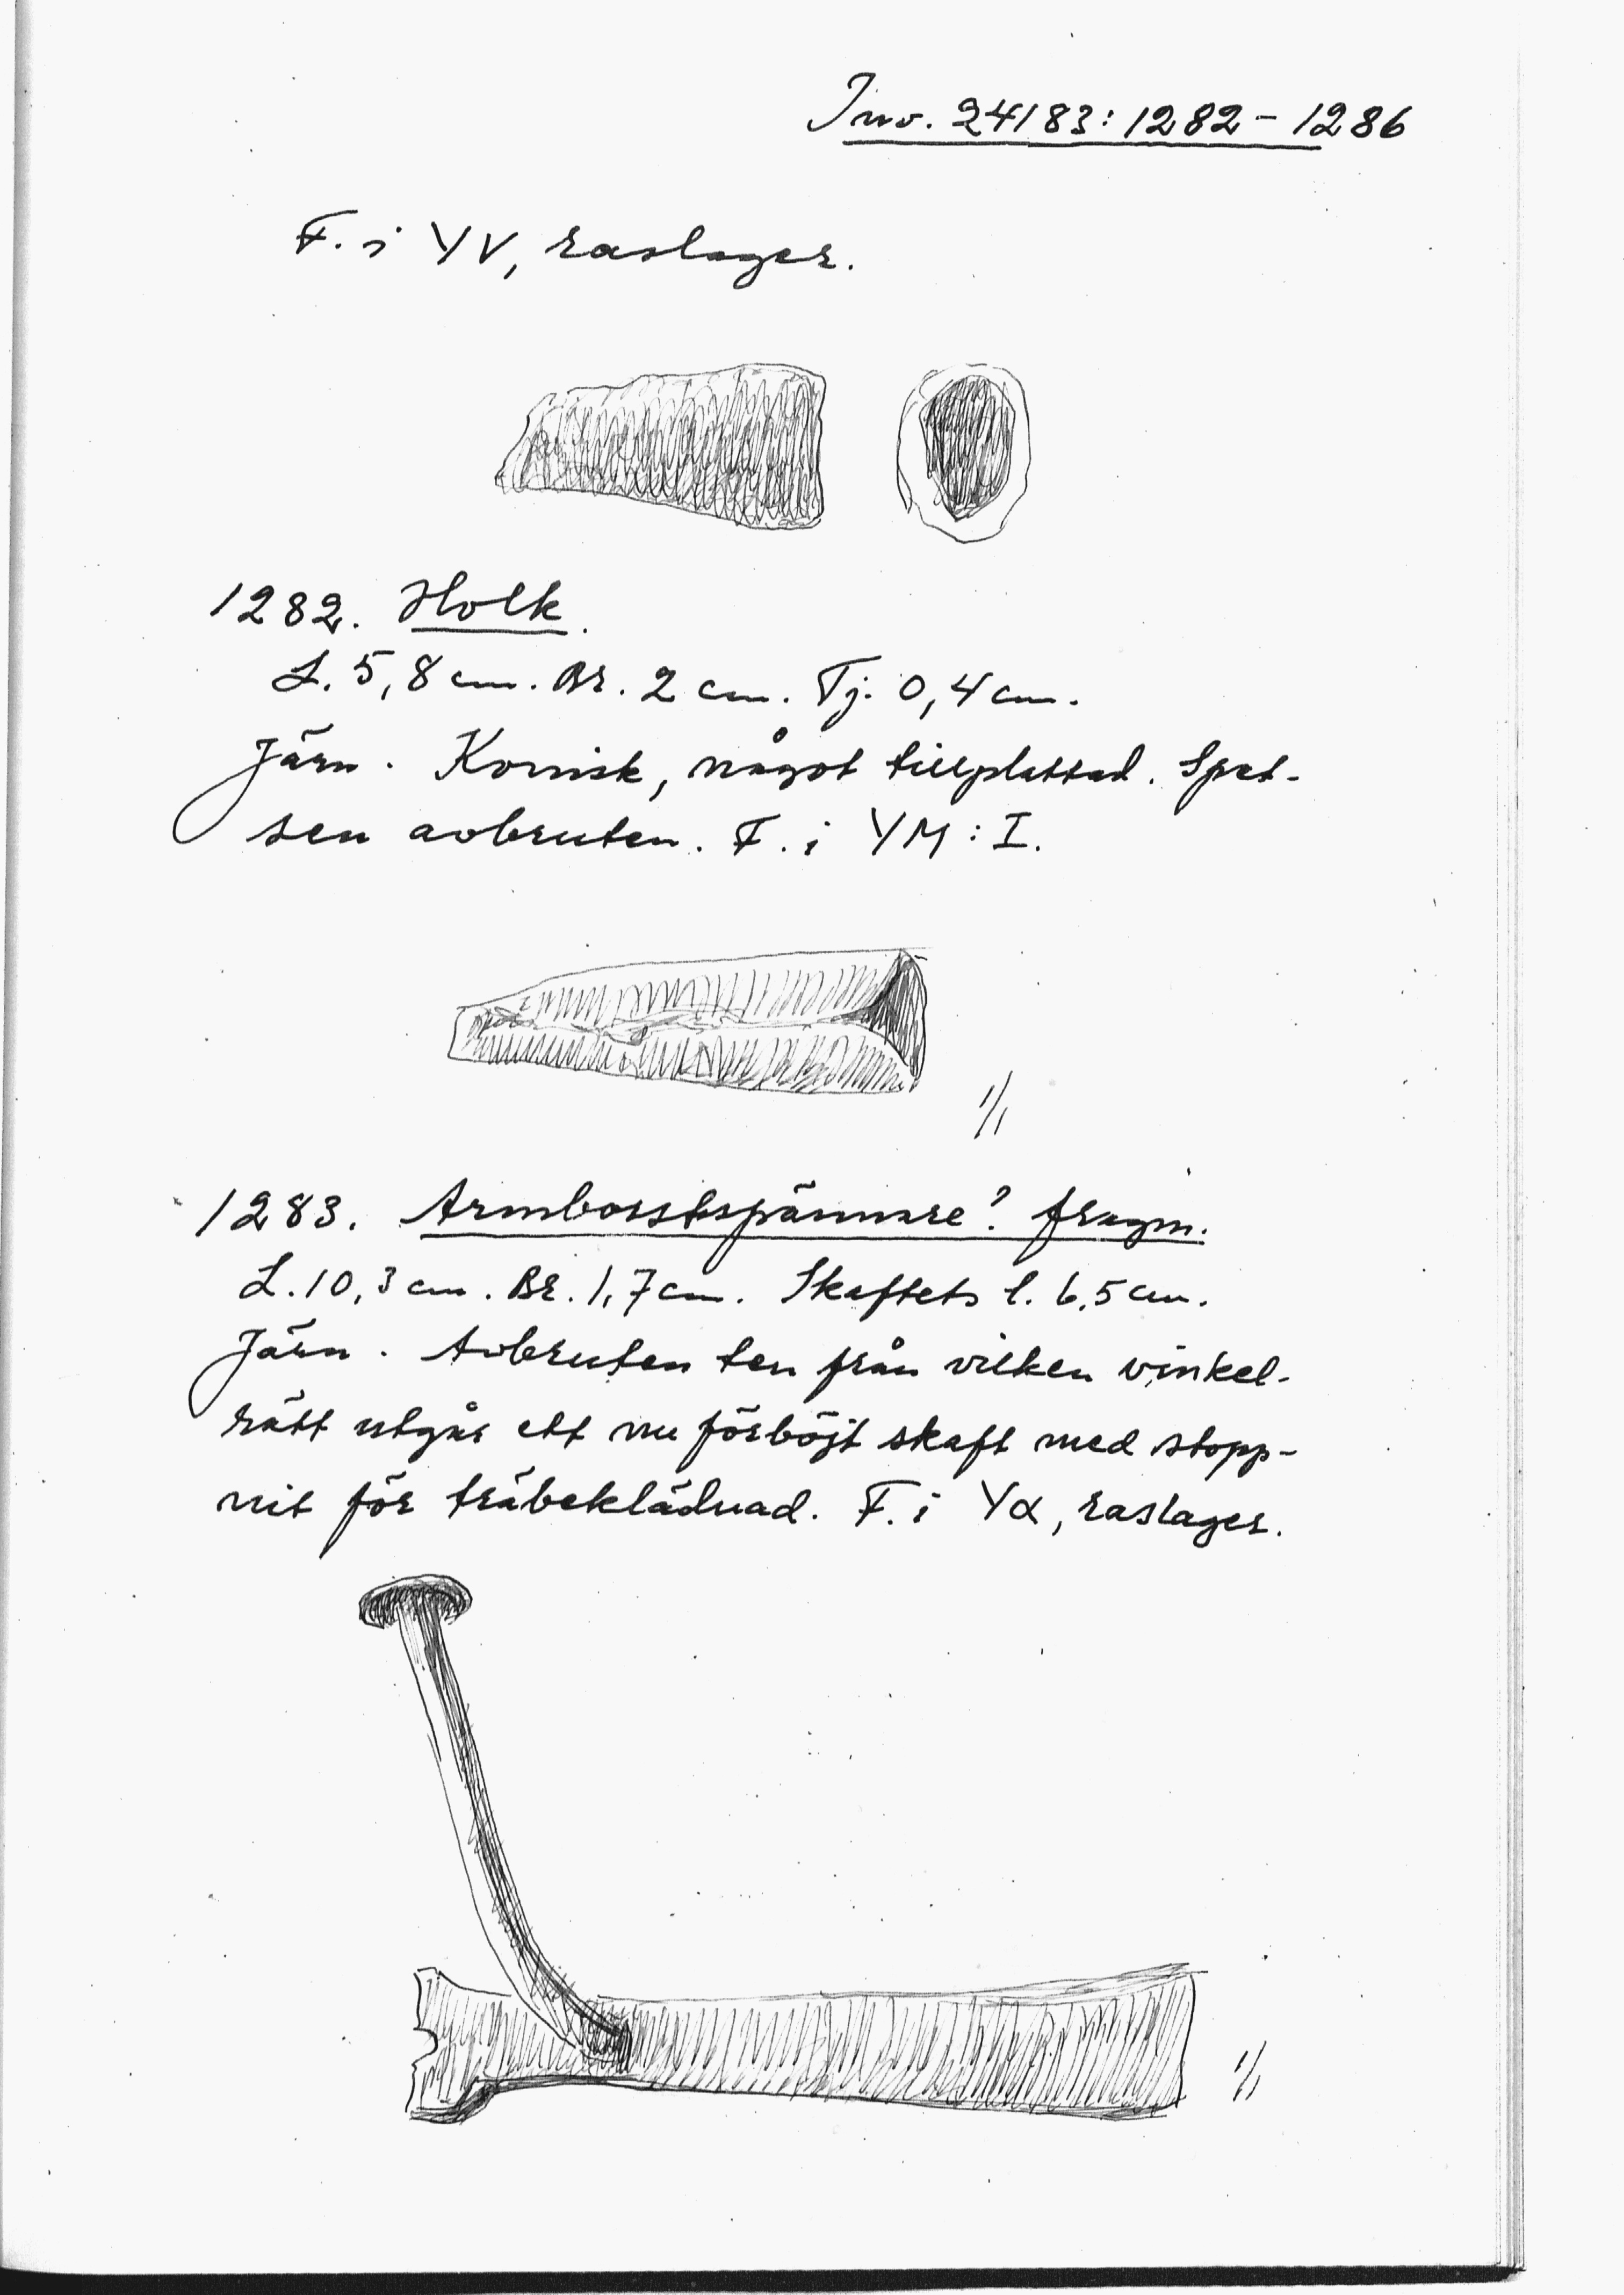 Inv. 24183:1282-1286
F. i YV, raslager.
1282. Holk.
L. 5,8 cm. Br. 2 cm. Tj. 0,4 cm.
Järn. Konisk, något tillplattad. Spet-
sen avbruten. F. i YM:I.
1/1
1283. Armborstspännare? fragm.
L. 10,3 cm. Br. 1,7 cm. Skaftets l. 6,5 cm.
Järn. Avbruten ten från vilken vinkel-
rätt utgår ett nu förböjt skaft med stopp-
nit för träbeklädnad. F. i Yα, raslager.
1/1